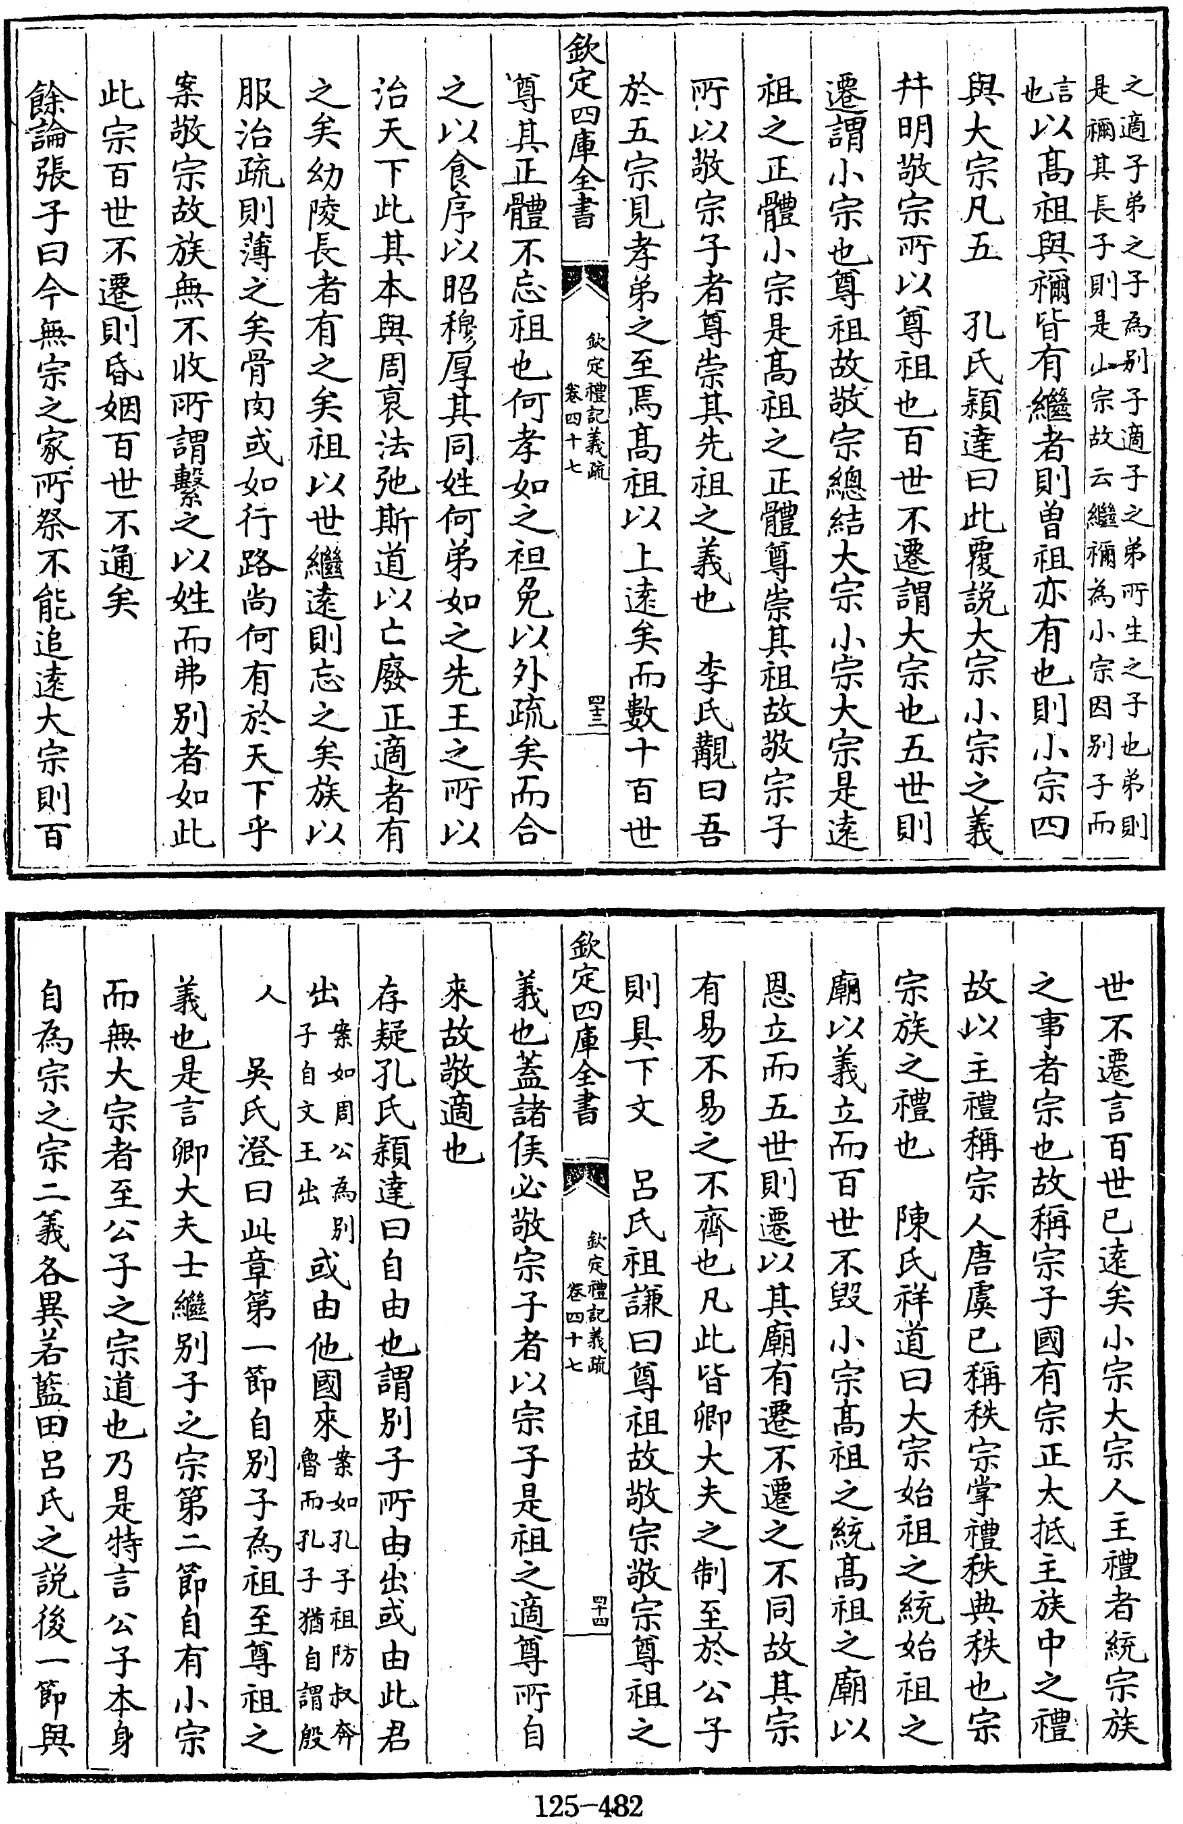 之適子弟之子為别子適子之弟所生之子也弟則
是禰其長子則是小宗故云繼禰為小宗因别子而
言
也以髙祖與禰皆有繼者則曽祖亦有也則小宗四
與大宗凡五　孔氏穎達曰此覆説大宗小宗之義
并明敬宗所以尊祖也百世不遷謂大宗也五世則
遷謂小宗也尊祖故敬宗總結大宗小宗大宗是逺
祖之正體小宗是髙祖之正體尊崇其祖故敬宗子
所以敬宗子者尊崇其先祖之義也　李氏覯曰吾
於五宗見孝弟之至焉髙祖以上逺矣而數十百世
欽定四庫全書
欽定禮記義疏
卷四十七
四十三
尊其正體不忘祖也何孝如之袒免以外疏矣而合
之以食序以昭穆厚其同姓何弟如之先王之所以
治天下此其本與周衰法弛斯道以亡廢正適者有
之矣幼陵長者有之矣祖以世繼逺則忘之矣族以
服治疏則薄之矣骨肉或如行路尚何有於天下乎
案敬宗故族無不收所謂繫之以姓而弗别者如此
此宗百世不遷則昏姻百世不通矣
餘論張子曰今無宗之家所祭不能追逺大宗則百
世不遷言百世已逺矣小宗大宗人主禮者統宗族
之事者宗也故稱宗子國有宗正太抵主族中之禮
故以主禮稱宗人唐虞已稱秩宗掌禮秩典秩也宗
宗族之禮也　陳氏祥道曰大宗始祖之統始祖之
廟以義立而百世不毀小宗髙祖之統髙祖之廟以
恩立而五世則遷以其廟有遷不遷之不同故其宗
有易不易之不齊也凡此皆卿大夫之制至於公子
則具下文　呂氏祖謙曰尊祖故敬宗敬宗尊祖之
欽定四庫全書
欽定禮記義疏
卷四十七
四十四
義也蓋諸侯必敬宗子者以宗子是祖之適尊所自
來故敬適也
存疑孔氏穎達曰自由也謂别子所由出或由此君
出案如周公為别子自文王出或由他國來案如孔子祖防叔奔魯而孔子猶自謂殷
人　吳氏澄曰此章第一節自别子為祖至尊祖之
義也是言卿大夫士繼别子之宗第二節自有小宗
而無大宗者至公子之宗道也乃是特言公子本身
自為宗之宗二義各異若藍田呂氏之説後一節與
125-482